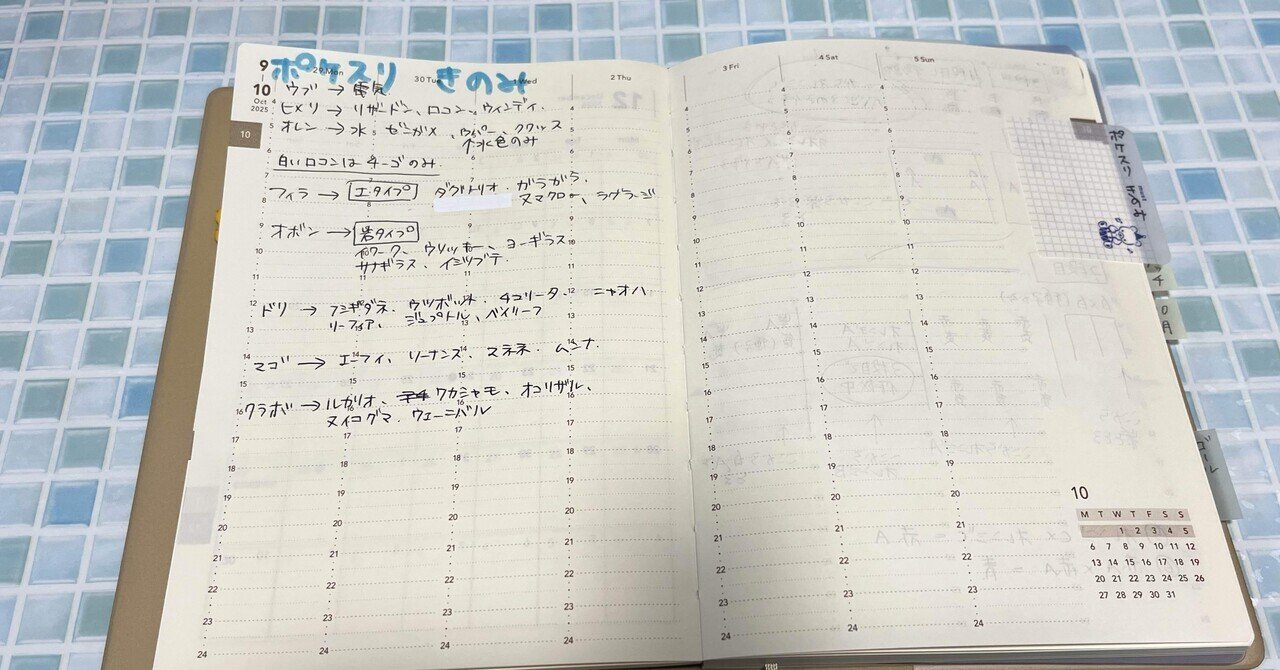 9
10
Oct
2025
10
29 Mon
30 Tue
1 Wed
2 Thu
3 Fri
4 Sat
5 Sun
ポケスリ きのみ
ウブ → 電気
ヒメリ → リザードン、ロコン、ウィンディ、
オレン → 水 ゼニガメ、ウパー、クワッス
↑水色のみ
白いロコンは チーゴのみ
フィラ → エタイプ ダグトリオ・ガラガラ、
ヌマクロー、ラグラージ
オボン → 岩タイプ
イワーク、ウソッキー、ヨーギラス
サナギラス、イシツブテ
ドリ → フシギダネ、ウツボット、チコリータ ニャオハ
リーフィア、ジュプトル、ベイリーフ
マゴ → エーフィ、ソーナンズ、マネネ・ムンナ
クラボ → ルカリオ、ワカシャモ、オコリザル、
ヌイコグマ、ウェーニバル
ポケスリ きのみ
10
M T W T F S S
1 2 3 4 5
6 7 8 9 10 11 12
13 14 15 16 17 18 19
20 21 22 23 24 25 26
27 28 29 30 31